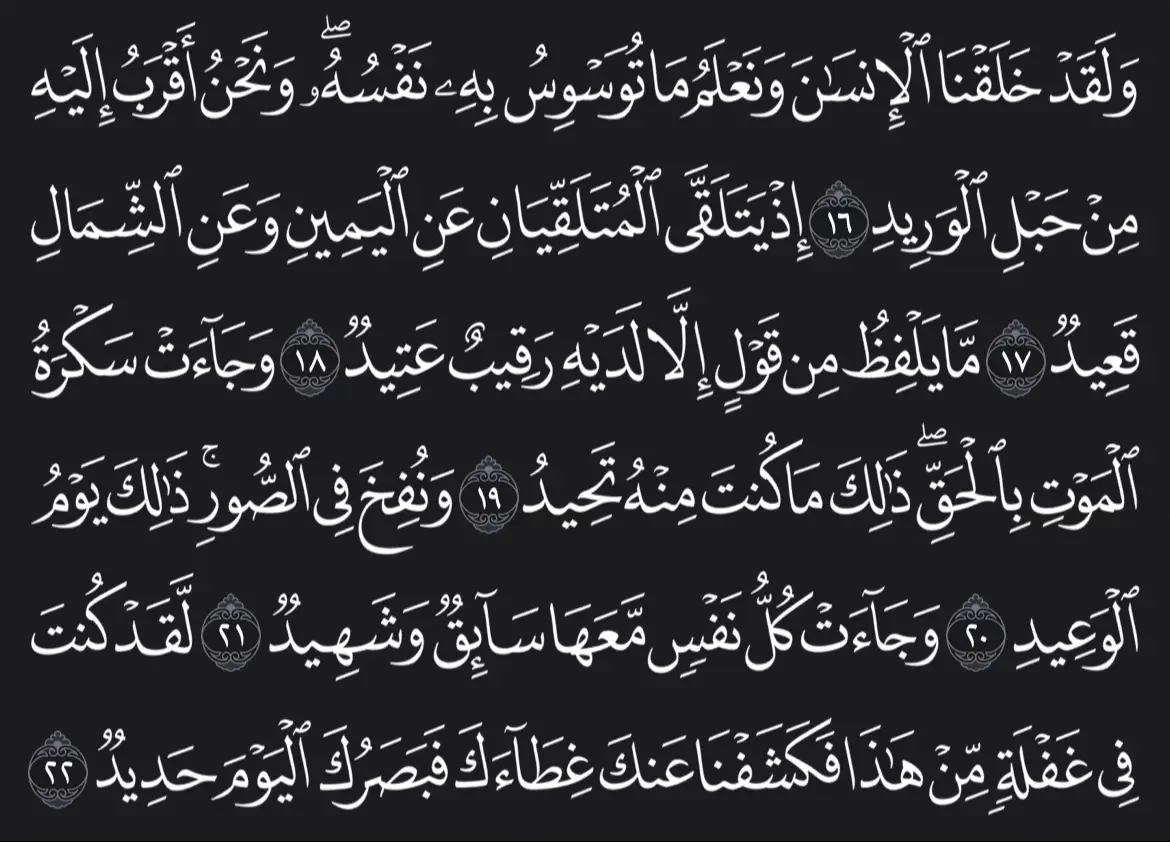 وَلَقَدۡ خَلَقۡنَا ٱلۡإِنسَٰنَ وَنَعۡلَمُ مَا تُوَسۡوِسُ بِهِۦ نَفۡسُهُۥۖ وَنَحۡنُ أَقۡرَبُ إِلَيۡهِ
مِنۡ حَبۡلِ ٱلۡوَرِيدِ ١٦ إِذۡ يَتَلَقَّى ٱلۡمُتَلَقِّيَانِ عَنِ ٱلۡيَمِينِ وَعَنِ ٱلشِّمَالِ
قَعِيدٞ ١٧ مَّا يَلۡفِظُ مِن قَوۡلٍ إِلَّا لَدَيۡهِ رَقِيبٌ عَتِيدٞ ١٨ وَجَآءَتۡ سَكۡرَةُ
ٱلۡمَوۡتِ بِٱلۡحَقِّۖ ذَٰلِكَ مَا كُنتَ مِنۡهُ تَحِيدُ ١٩ وَنُفِخَ فِي ٱلصُّورِۚ ذَٰلِكَ يَوۡمُ
ٱلۡوَعِيدِ ٢٠ وَجَآءَتۡ كُلُّ نَفۡسٖ مَّعَهَا سَآئِقٞ وَشَهِيدٞ ٢١ لَّقَدۡ كُنتَ
فِي غَفۡلَةٖ مِّنۡ هَٰذَا فَكَشَفۡنَا عَنكَ غِطَآءَكَ فَبَصَرُكَ ٱلۡيَوۡمَ حَدِيدٞ ٢٢